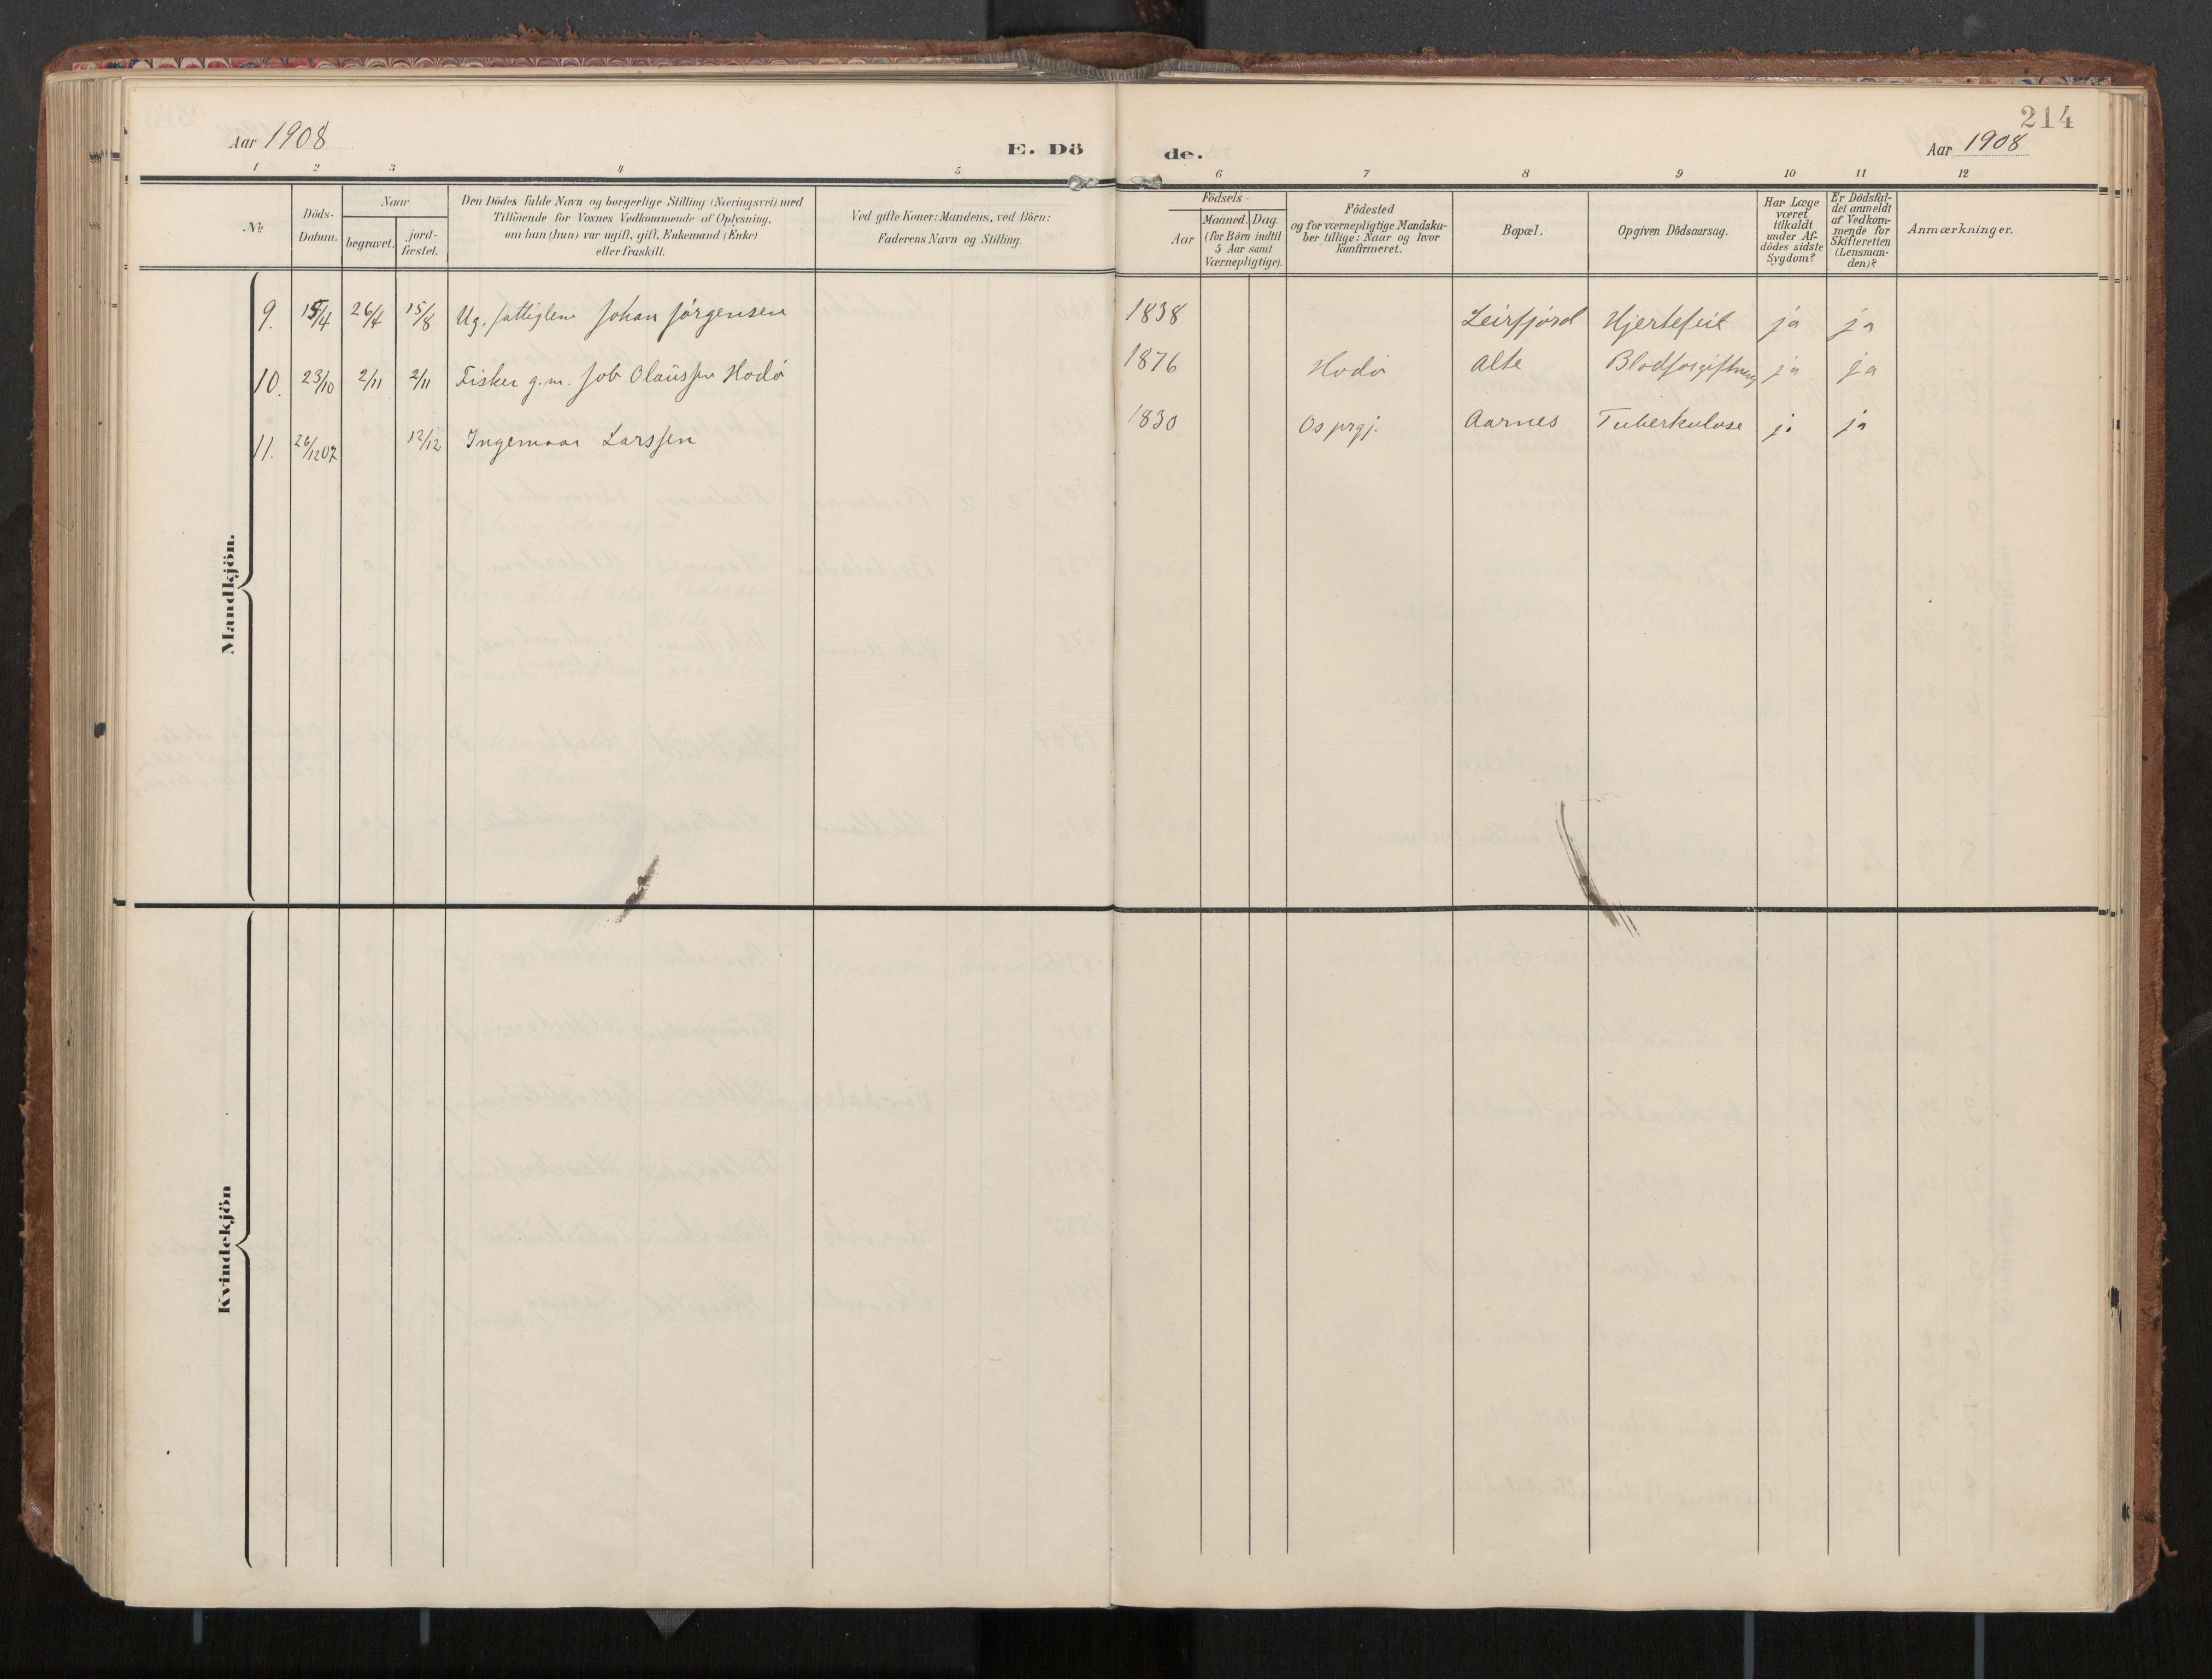 214
Aar 1908
E. Dö
de.
Aar 1908
1 2 3 4 5
6 7 8 9 10 11 12
№
Döds-
Datum.
Naar
begravet.
jord-
fæstet.
Den Dödes fulde Navn og borgerlige Stilling (Næringsvei) med
Tilföiende for Voxnes Vedkommende af Oplysning,
om han (hun) var ugift, gift, Enkemand (Enke)
eller fraskilt.
Ved gifte Koner: Mandens, ved Börn:
Faderens Navn og Stilling.
Födsels-
Aar
Maaned. Dag.
(for Börn indtil
5 Aar samt
Værnepligtige).
Födested
og for værnepligtige Mandska-
ber tillige: Naar og hvor
konfirmeret.
Bopæl.
Opgiven Dödsaarsag.
Har Læge
været
tilkaldt
under Af-
dödes sidste
Sygdom?
Er Dödsfal-
det anmeldt
af Vedkom-
mende for
Skifteretten
(Lensman-
den)?
Anmærkninger.
Mandkjön.
9. 15/4 26/4 15/8 Ug. fattiglem Johan Jörgensen 1838 Leirfjord Hjertefeil ja ja
10. 23/10 2/11 2/11 Fisker g.m. Job Olaussen Hodö 1876 Hodö Alte Blodforgiftning ja ja
11. 26/12 07 12/12 Ingemaar Larssen 1830 Os prgj. Aarnes Tuberkulose ja ja
Kvindekjön